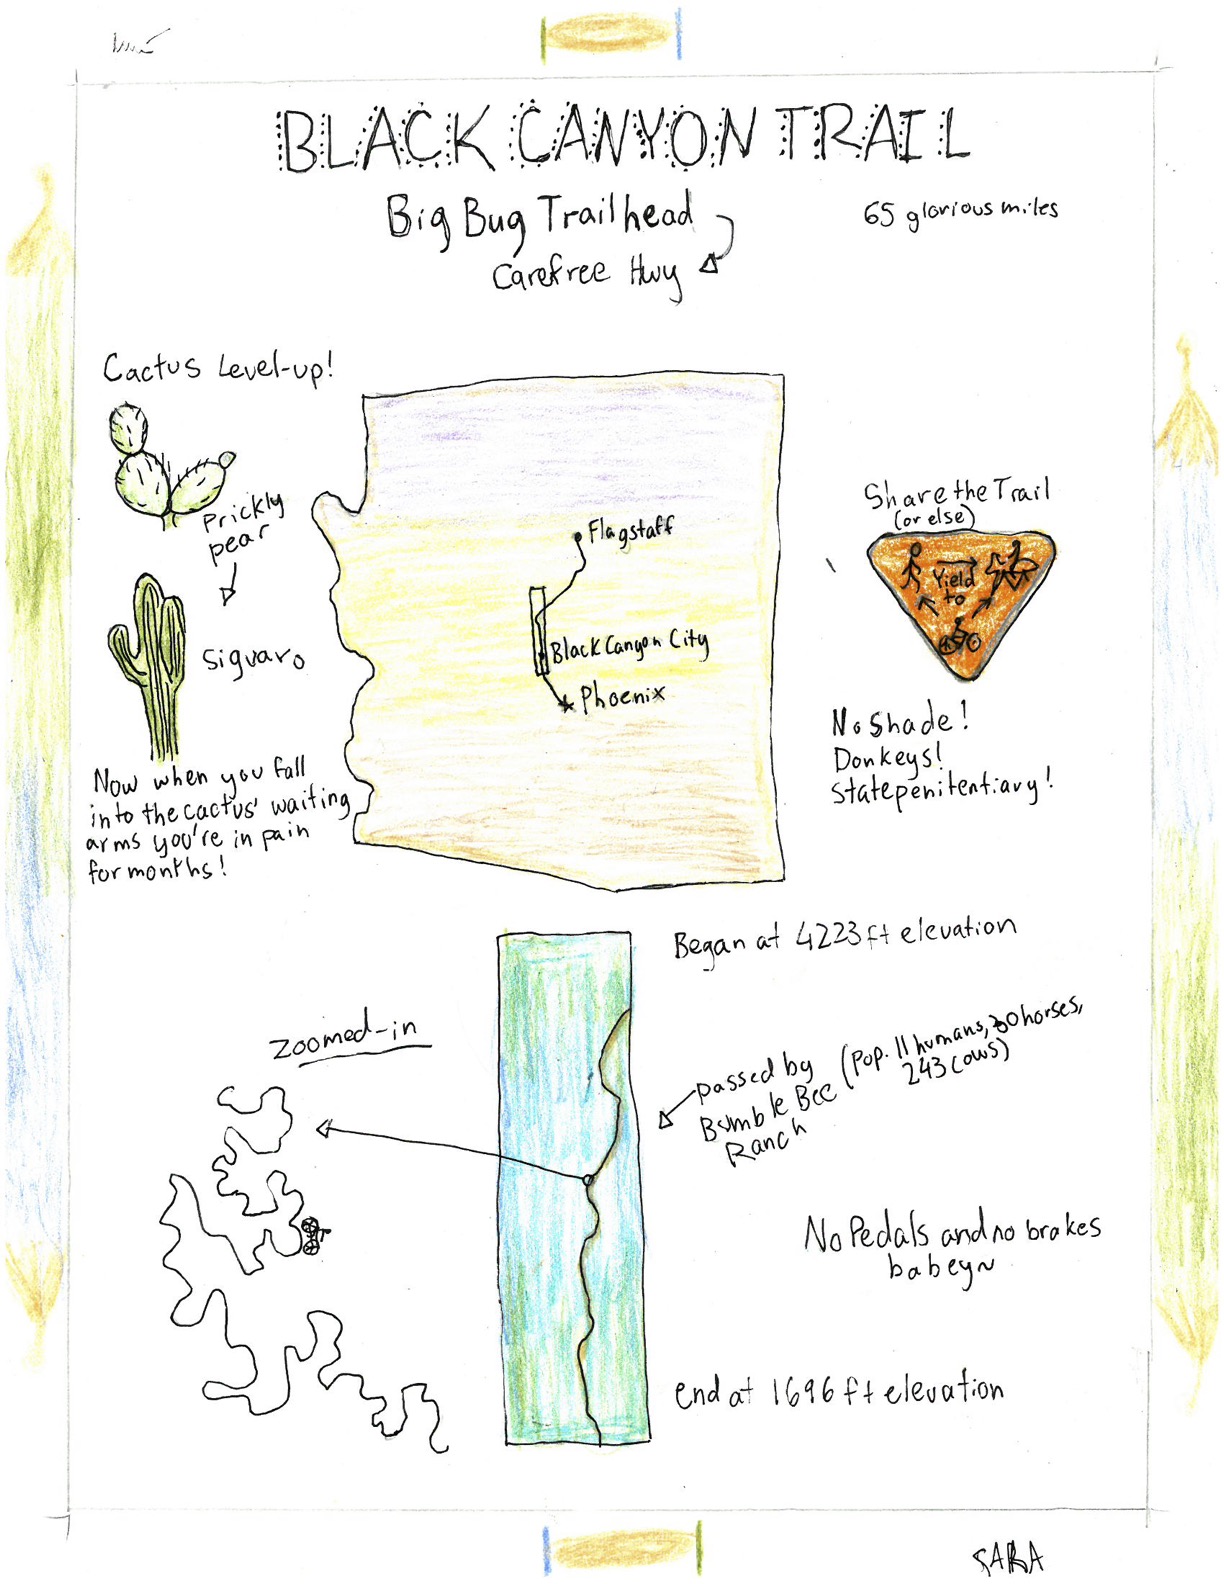 BLACK CANYON TRAIL
Big Bug Trailhead
65 glorious miles
Carefree Hwy
Cactus Level-up!
Prickly
pear
Siguaro
Now when you fall
into the cactus' waiting
arms you're in pain
for months!
Flagstaff
Black Canyon City
Phoenix
Share the Trail
(or else)
Yield
to
No Shade!
Donkeys!
State penitentiary!
Began at 4223 ft elevation
Zoomed-in
passed by
Bumble Bee
Ranch
(Pop. 11 humans, 30 horses,
243 cows)
No Pedals and no brakes
babey~
end at 1696 ft elevation
SARA